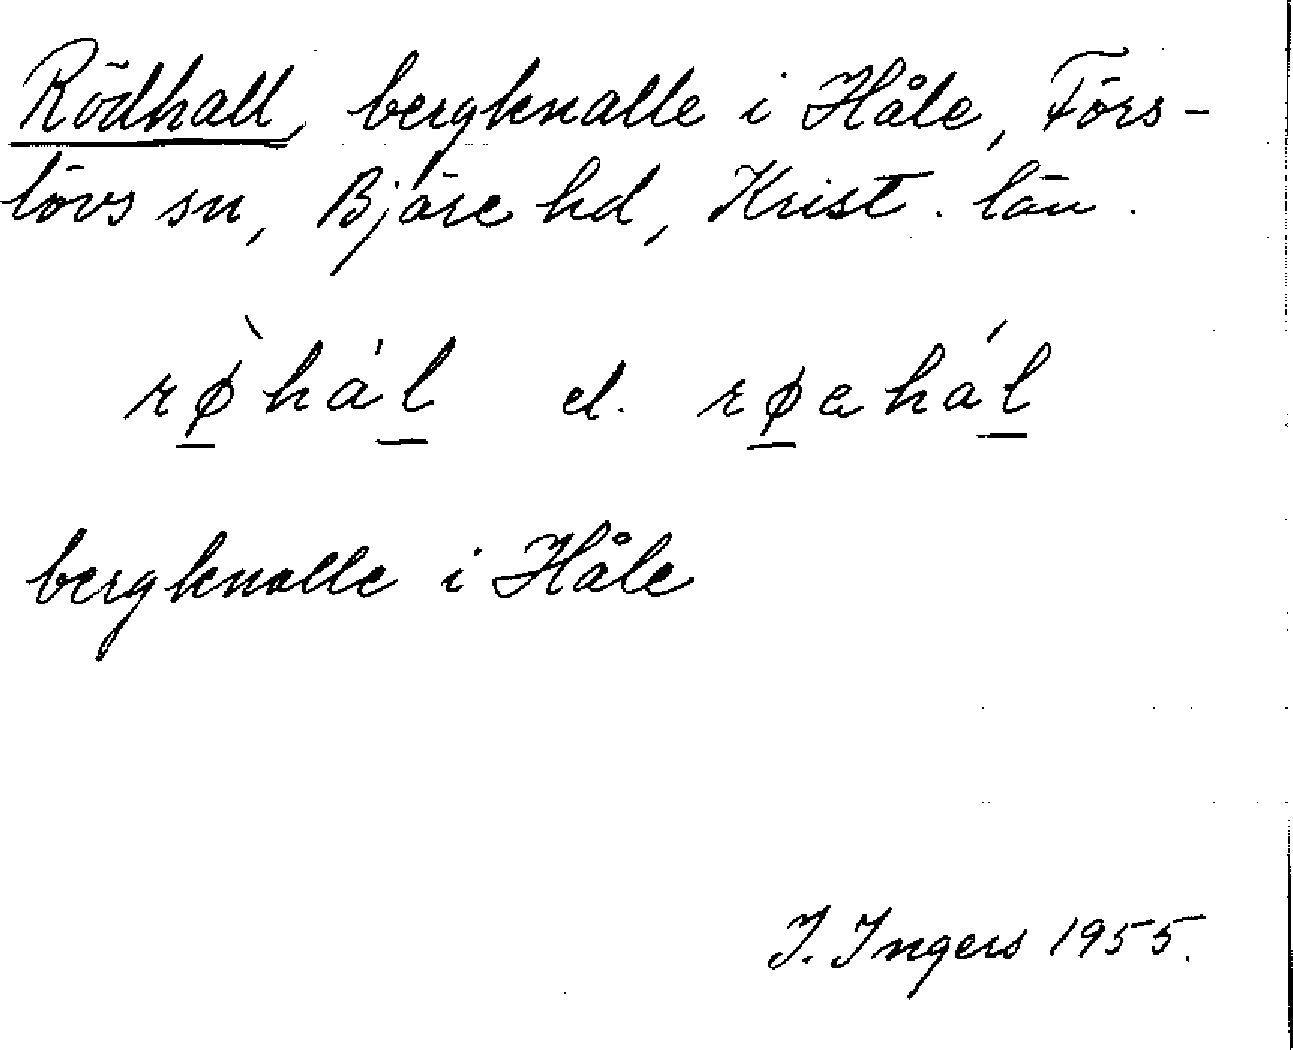 Rödhall, bergknalle i Håle, Förs-
lövs sn, Bjäre hd, Krist. län.
rø̠̀hál̠ el. rø̠ahál̠
bergknalle i Håle
I. Ingers 1955.